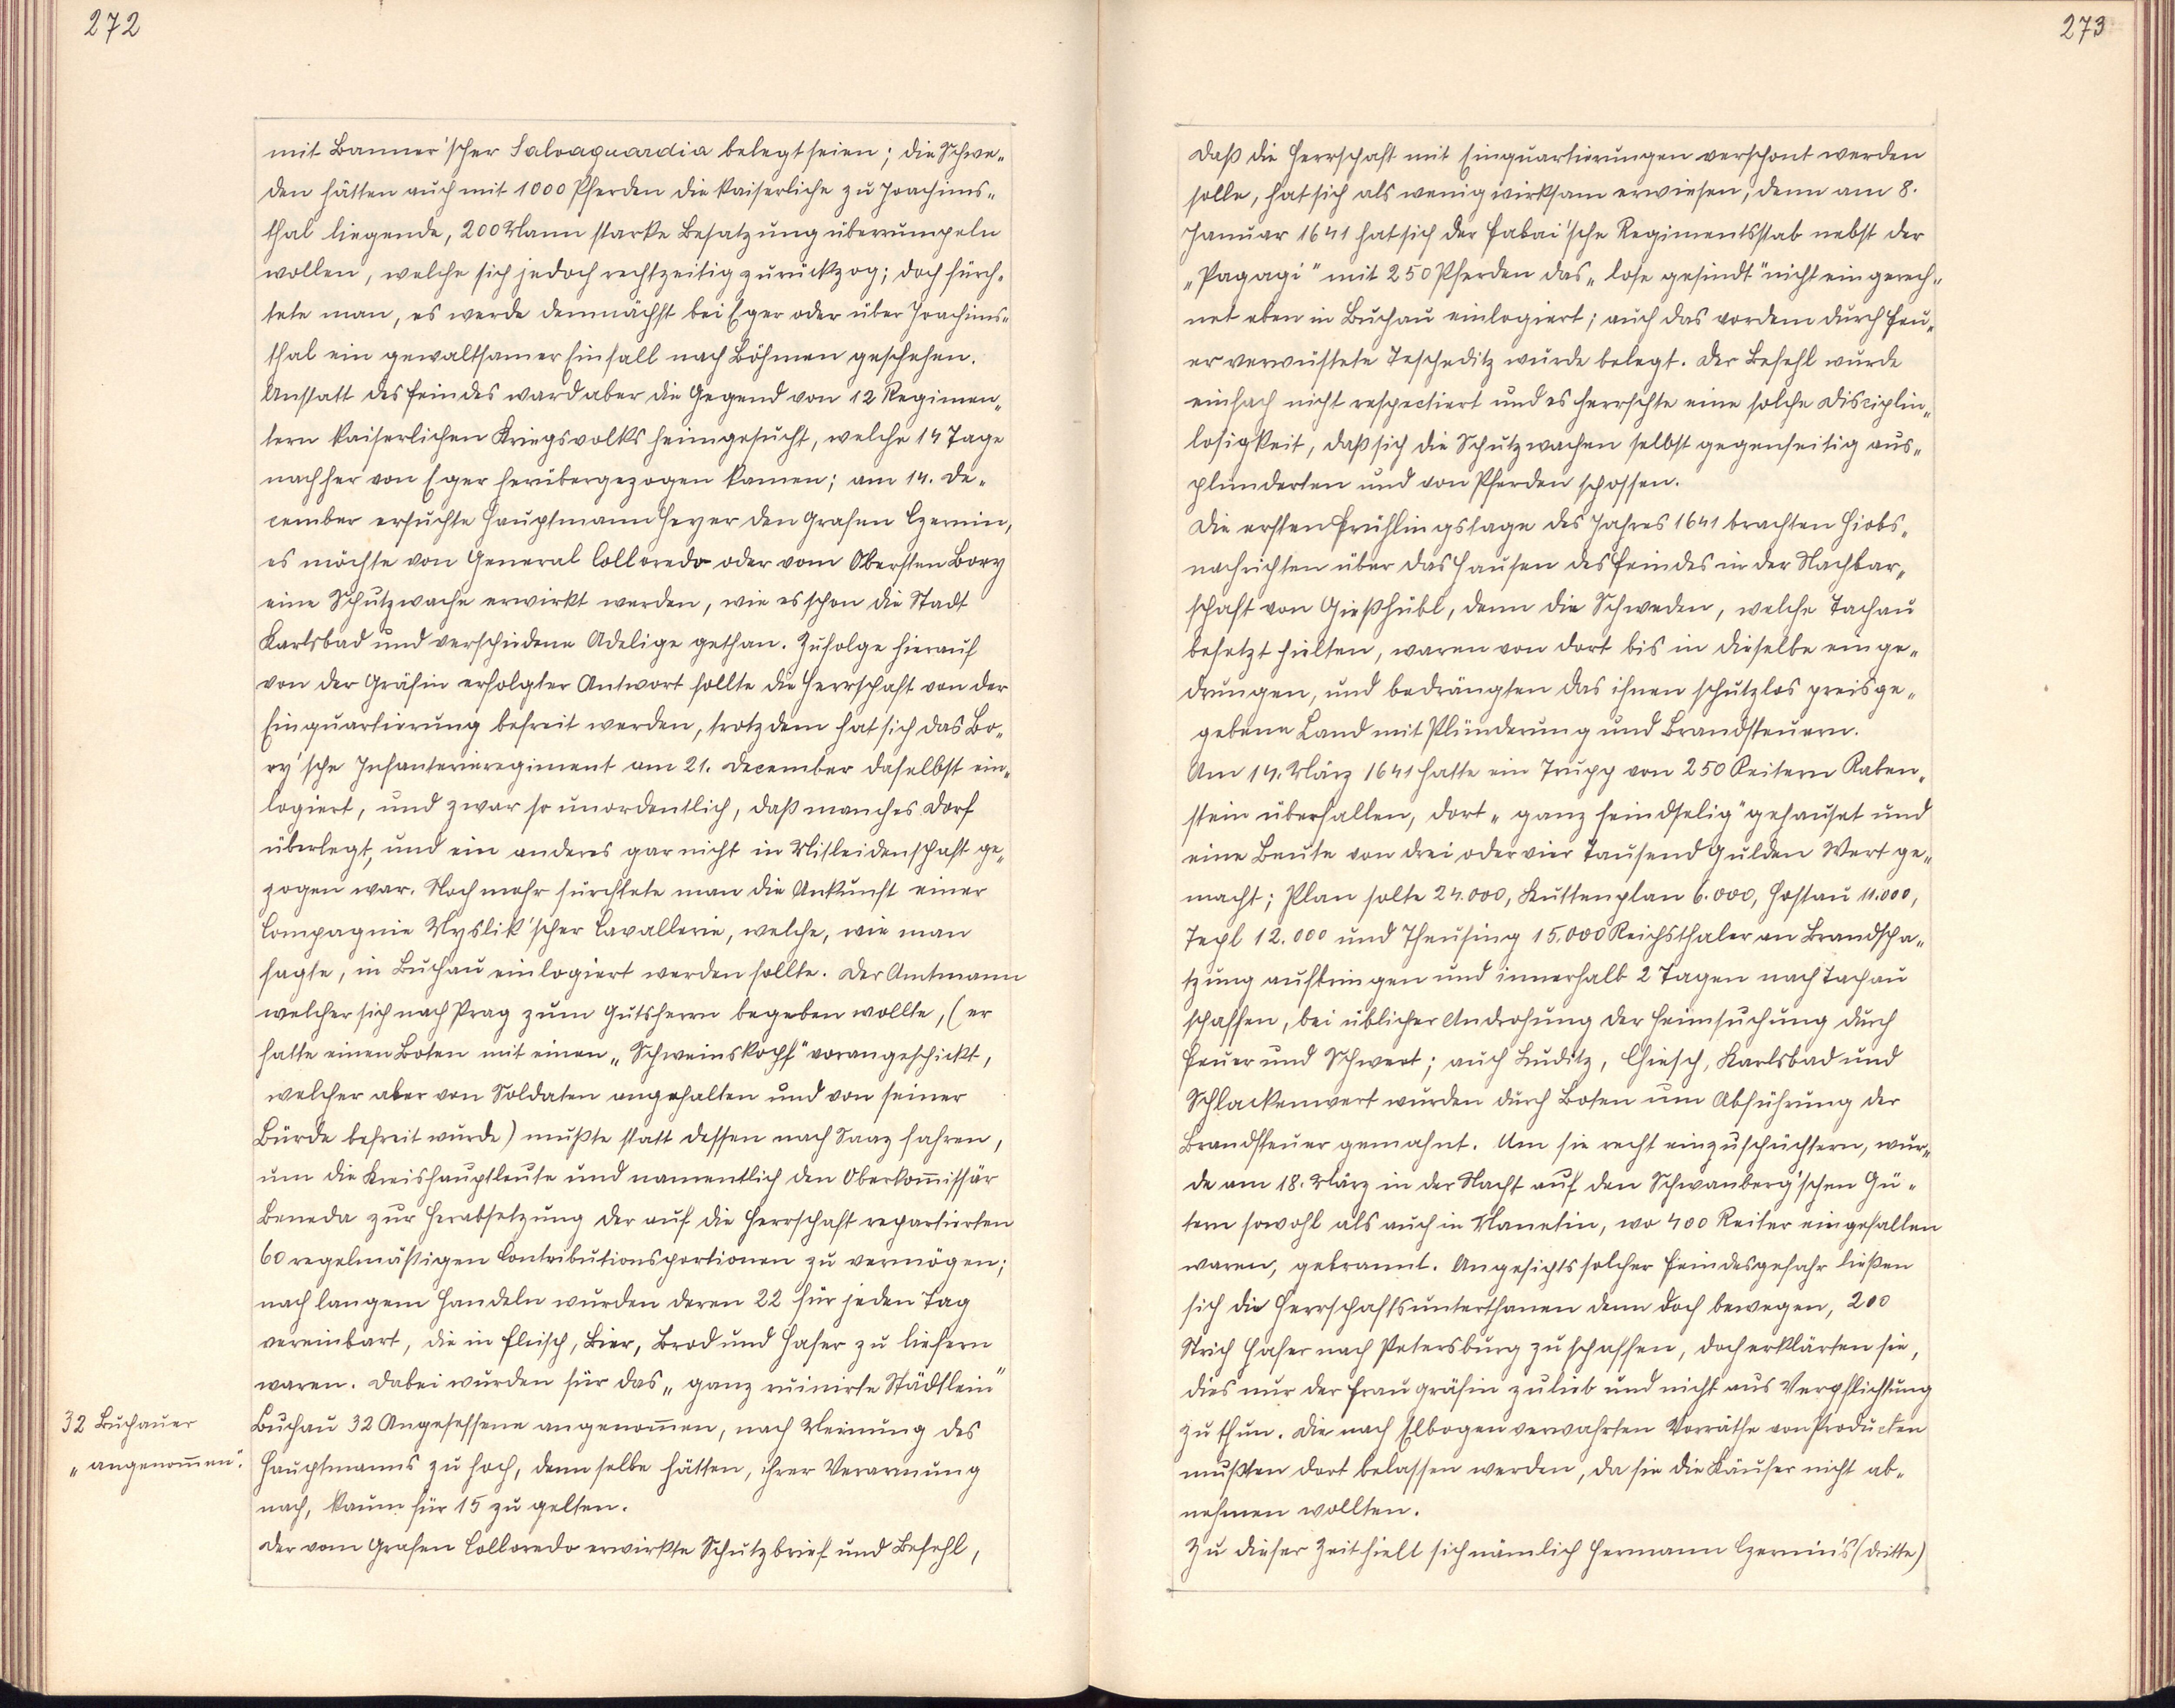 272
mit Banner'scher Salvaguardia belegt seien; die Schwe„
den hätten auch mit 1000 Pferden die kaiserliche zu Joachims„
thal liegende, 200 Mann starke Besatzung überrumpeln
wollen, welche sich jedoch rechtzeitig zurückzog; doch fürch„
tete man, es werde demnächst bei Eger oder über Joachims„
thal ein gewaltsamer Einfall nach Böhmen geschehen.
Anstatt des Feindes ward aber die Gegend von 12 Regimen„
tern kaiserlichen Kriegsvolks heimgesucht, welche 14 Tage
nachher von Eger herübergezogen kamen; am 14. De„
cember ersuchte Hauptmann Heyer den Grafen Czernin,
es möchte von General Colloredo oder vom Obersten Bory
eine Schutzwache erwirkt werden, wie es schon die Stadt
Karlsbad und verschiedene Adelige gethan. Zufolge hierauf
von der Gräfin erfolgter Antwort sollte die Herrschaft von der
Einquartierung befreit werden, trotzdem hat sich das Bo„
ry'sche Infanterieregiment am 21. December daselbst ein„
logiert, und zwar so unordentlich, daß manches Dorf
überlegt, und ein anderes gar nicht in Mitleidenschaft ge„
zogen war. Noch mehr fürchtete man die Ankunft einer
Compagnie Myslik'scher Cavallerie, welche, wie man
sagte, in Buchau einlogiert werden sollte. Der Amtmann
welcher sich nach Prag zum Gutsherrn begeben wollte, (er
hatte einen Boten mit einen „Schweinskopf" vorangeschickt,
welcher aber von Soldaten angehalten und von seiner
Bürde befreit wurde) mußte statt dessen nach Saaz fahren,
um die Kreishauptleute und namentlich den Oberkom̅issär
Beneda zur Herabsetzung der auf die Herrschaft repartierten
60 regelmäßigen Contributionsportionen zu vermögen;
nach langem Handeln wurden deren 22 für jeden Tag
vereinbart, die in Fleisch, Bier, Brod und Hafer zu liefern
waren. Dabei wurden für das „ganz ruinirte Städtlein"
32 Buchauer
„angenom̅en".
Buchau 32 Angesessene angenom̅en, nach Meinung des
Hauptmanns zu hoch, denn selbe hätten, ihrer Verarmung
nach, kaum für 15 zu gelten.
Der vom Grafen Colloredo erwirkte Schutzbrief und Befehl,
273
daß die Herrschaft mit Einquartierungen verschont werden
solle, hat sich als wenig wirksam erwiesen, denn am 8.
Januar 1641 hat sich der Fabai'sche Regimentsstab nebst der
„Pagagi" mit 250 Pferden das „lose gesindt" nicht eingerech„
net eben in Buchau einlogiert; auch das vordem durch Feu„
er verwüstete Tescheditz wurde belegt. Der Befehl wurde
einfach nicht respectiert und es herrschte eine solche Disciplin„
losigkeit, daß sich die Schutzwachen selbst gegenseitig aus„
plünderten und von Pferden schossen.
Die ersten Frühlingstage des Jahres 1641 brachten Hiobs„
nachrichten über das Hausen des Feindes in der Nachbar„
schaft von Gießhübl, denn die Schweden, welche Tachau
besetzt hielten, waren von dort bis in dieselbe einge„
drungen, und bedrängten das ihnen schutzlos preisge„
gebene Land mit Plünderung und Brandsteuern.
Am 14. März 1641 hatte ein Trupp von 250 Reitern Raben„
stein überfallen, dort „ganz feindselig" gehauset und
eine Beute von drei oder vier Tausend Gulden Wert ge„
macht; Plan solte 24.000, Kuttenplan 6.000, Hostau 11.000,
Tepl 12.000 und Theusing 15.000 Reichsthaler an Brandscha„
tzung aufbringen und innerhalb 2 Tagen nach Tachau
schaffen, bei üblicher Androhung der Heimsuchung durch
Feuer und Schwert; auch Luditz, Chiesch, Karlsbad und
Schlackenwert wurden durch Boten um Abführung der
Brandsteuer gemahnt. Um sie recht einzuschüchtern, wur„
de am 18. März in der Nacht auf den Schwanberg'schen Gü„
tern sowohl als auch in Manetin, wo 400 Reiter eingefallen
waren, gebrannt. Angesichts solcher Feindesgefahr ließen
sich die Herrschaftsunterthanen denn doch bewegen, 200
Strich Hafer nach Petersburg zu schaffen, doch erklärten sie,
dies nur der Frau Gräfin zulieb und nicht aus Verpflichtung
zu thun. Die nach Elbogen verwahrten Vorräthe von Producten
mußten dort belassen werden, da sie die Käufer nicht ab„
nehmen wollten.
Zu dieser Zeit hielt sich nämlich Hermann Czernin's (dritte)